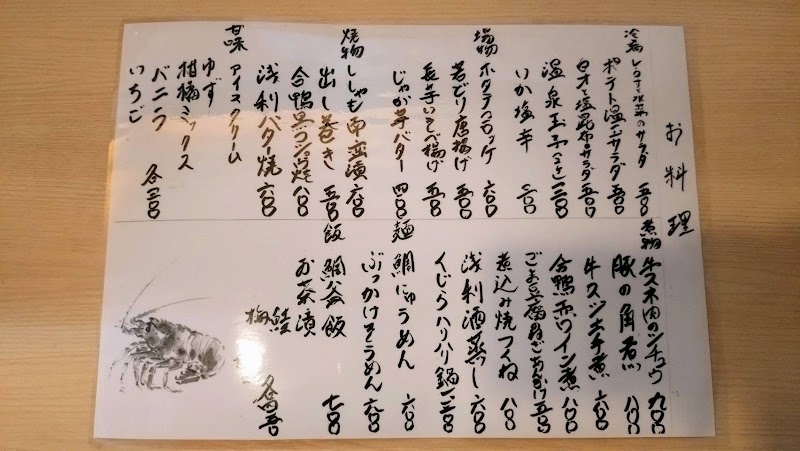 お料理
冷菜
レタスと水菜のサラダ 五〇〇
ポテト温玉サラダ 五〇〇
白オと塩昆布のサラダ 五〇〇
温泉玉子(二ケ) 三〇〇
いか塩辛 三〇〇
揚物
ホタテコロッケ 六〇〇
若どり唐揚げ 五〇〇
長芋いそべ揚げ 五〇〇
じゃが芋バター 四〇〇
焼物
ししゃも南蛮漬 六〇〇
出し巻き 五〇〇
合鴨黒コショウ焼 八〇〇
浅利バター焼 六〇〇
甘味
アイスクリーム
ゆず
柑橘ミックス
バニラ
いちご
各三〇〇
煮物
牛スネ肉のシチュウ 九〇〇
豚の角煮 八〇〇
牛スジ土手煮 六〇〇
合鴨赤ワイン煮 八〇〇
ごま豆腐 五〇〇
煮込み焼つくね 八〇〇
浅利酒蒸し 六〇〇
くじらハリハリ鍋 一二〇〇
麺
鯛にゅうめん 六〇〇
ぶっかけそうめん 六〇〇
飯
鯛釜飯 七〇〇
お茶漬
鮭
梅
各四五〇